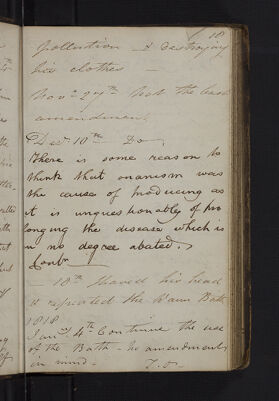 18
pollution & destroying
his clothes —
Novr 27th Not the least
amendment
Decr 10th Do
There is some reason to
think that onanism was
the cause of producing as
it is unquestionably of pro
longing the disease which is
in no degree abated.
Contr
— 18th Shaved his head
& repeated the Warm Bath
1818
Jany 4th Continue the use
of the Bath - no amendment
in mind.